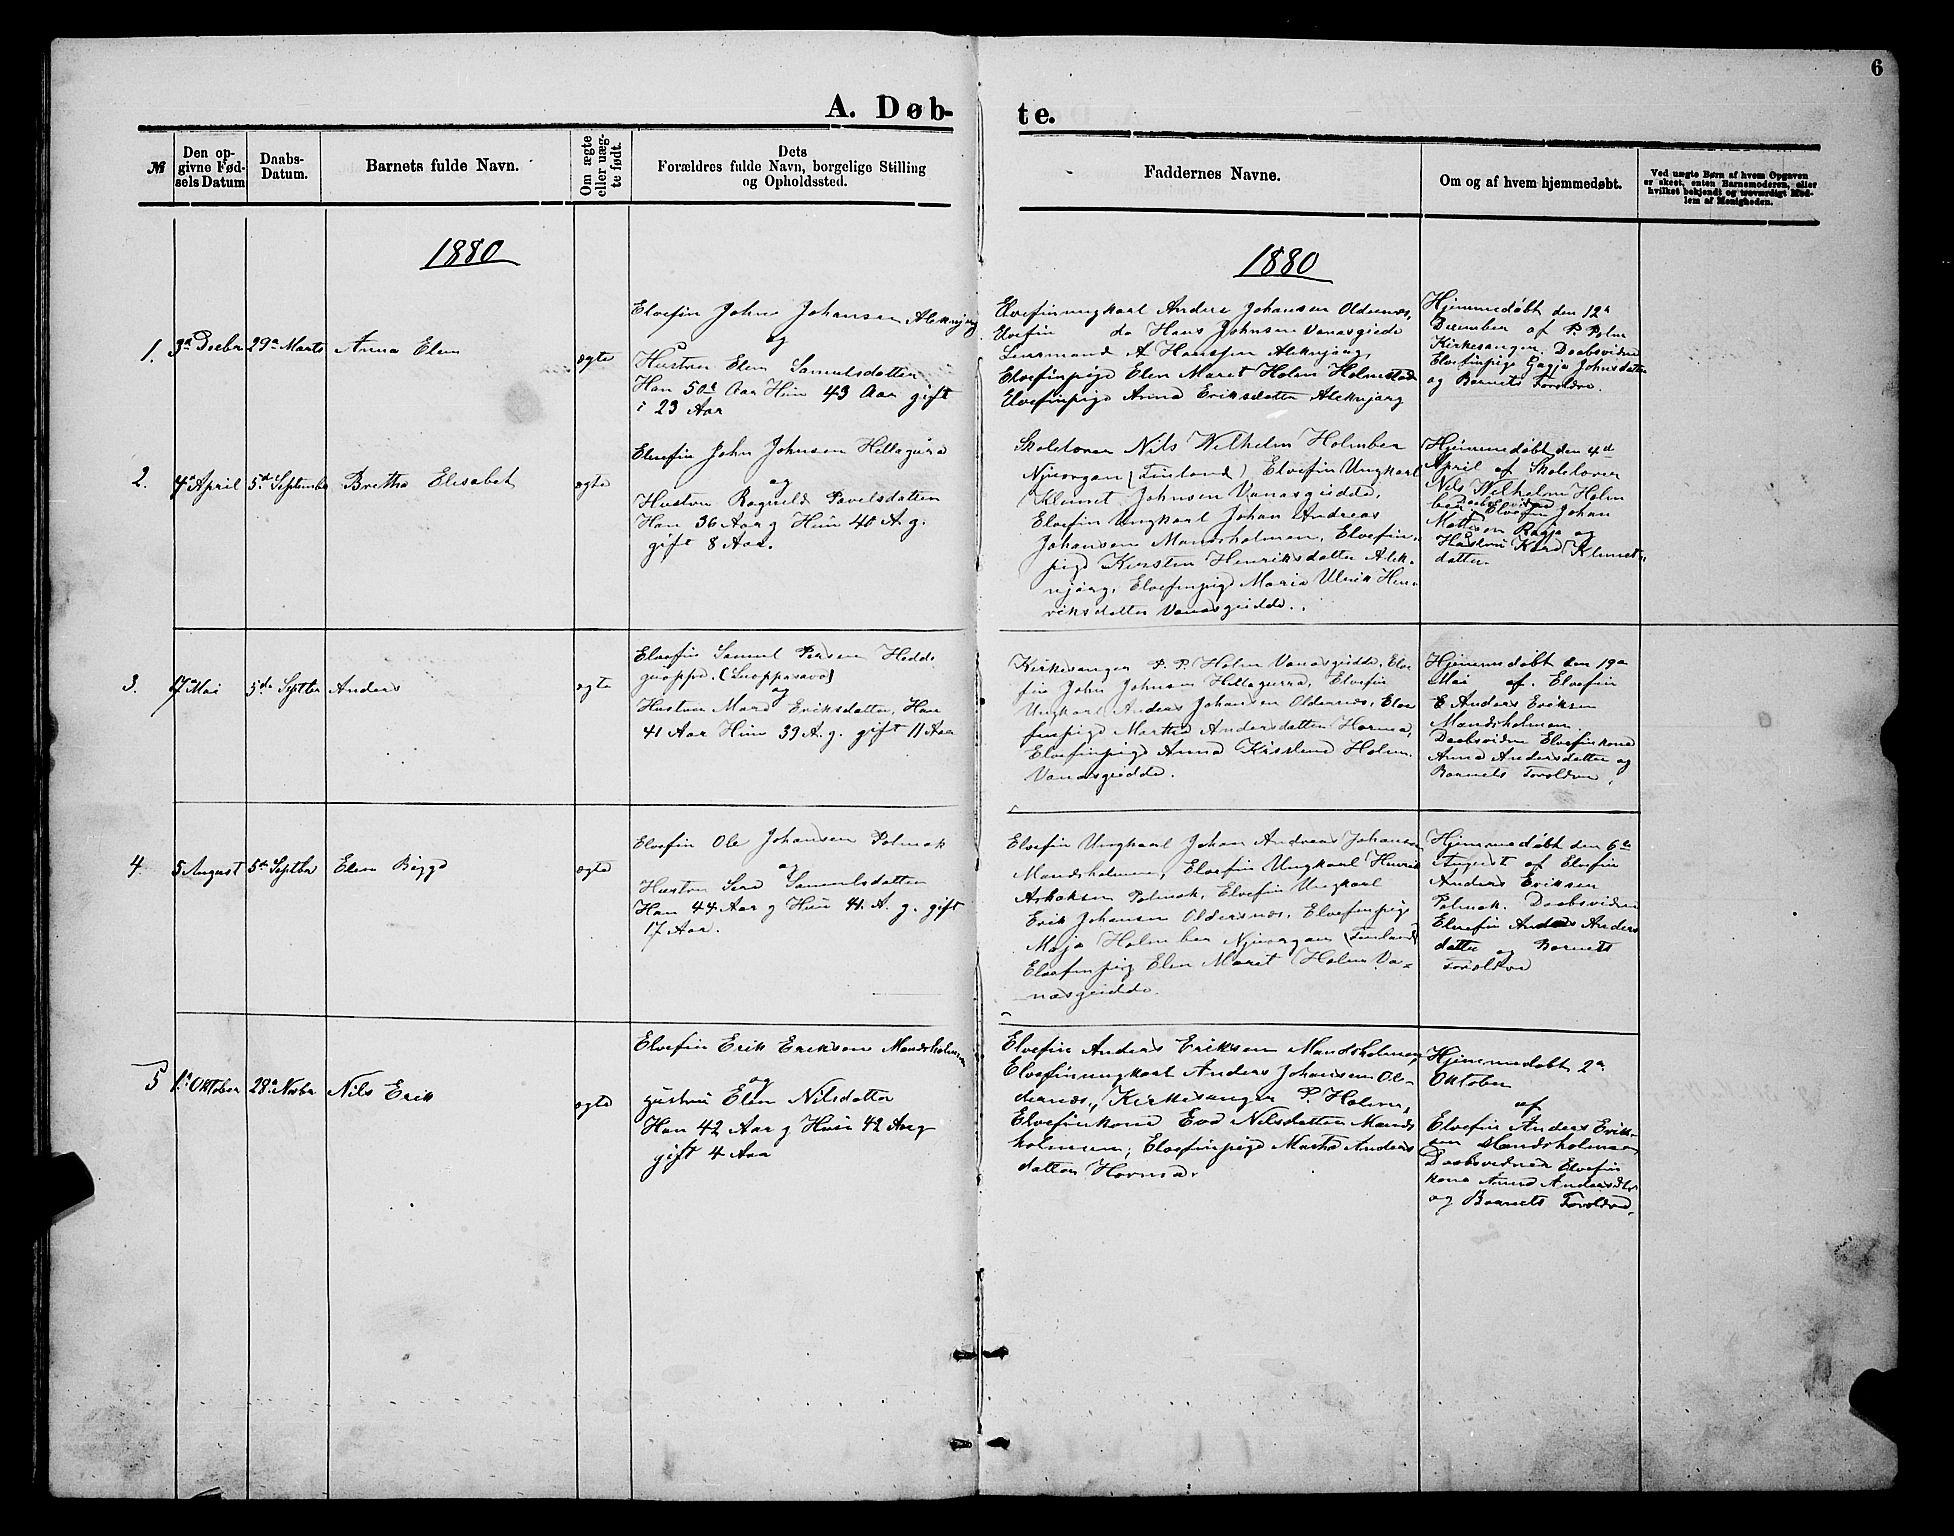 6
A. Døb-
te.
№
Den op-
givne Fød-
sels Datum
Daabs-
Datum.
Barnets fulde Navn.
Om ægte
eller uæg-
te født.
Dets
Forældres fulde Navn, borgelige Stilling
og Opholdssted.
Faddernes Navne.
Om og af hvem hjemmedøbt.
Ved uægte Børn af hvem Opgaven
er skeet, enten Barnemoderen, eller
hvilket bekjendt og troværdigt Med-
lem af Menigheden.
1880
1880
1.
3a Decbr
29a Marts
Anna Elen
ægte
Elvefin John Johansen Aleknjarg
og
Hustru Elen Samuelsdatter
Han 50 Aar Hun 43 Aar gift
i 23 Aar
Elvefinungkarl Anders Johansen Oldernes,
Elvefin do Hans Johnsen Vanasgiedde
Lensmand A Hanssen Aleknjarg,
Elvefinpige Elen Maret Holm Holmestad
Elvefinpige Anna Eriksdatter Aleknjarg
Hjemmedøbt den 12a
December af P. P. Holm
Kirkesanger. Daabsvidne
Elvefinpig Gagja Johnsdatter
og Barnets Forældre.
2.
4a April
5te September
Bretha Elisabet
ægte
Elvefin John Johnsen Hillagurra
og
Hustru Ragnild Pavelsdatter
Han 36 Aar g Hun 40 A. g.
gift 8 Aar.
Skolelærer Nils Wilhelm Holmber
Njuorgam (Finland) Elvefin Ungkarl
Klemet Johnsen Vanasgiedde,
Elvefin Ungkarl Johan Andreas
Johansen Mandsholmen, Elvefin-
pige Kirsten Henriksdatter Alek-
njarg, Elvefinpige Maria Ulrik Hen-
riksdatter Vanasgiedde.
Hjemmedøbt den 4d
April af Skolelærer
Nils Wilhelm Holm
ber Daabsvidne
Elvefin Johan
Mathisen Ragja og
Hustru Karo Klemets
datter.
3.
7a Mai
5te Septbr
Anders
ægte
Elvefin Samuel Persen Hedde
guoppe. (Luoppasavo)
og
Hustru Mare Eriksdatter, Han
41 Aar Hun 39 A. g. gift 11 Aar
Kirkesanger P. P. Holm Vanasgiedde, Elve
fin John Johnsen Hillagurra, Elvefin
Ungkarl Anders Johansen Oldernes, Elve
finpige Martha Andersdatter Horma,
Elvefinpige Anna Kristine Holm
Vanasgiedde.
Hjemmedøbt den 19a
Mai af Elvefin
E Anders Eriksen
Mandsholmen
Daabsvidne Elvefinkone
Anna Andersdatter og
Barnets Forældre.
4.
5 August
5te Septbr
Elen Bigge
ægte
Elvefin Ole Johansen Polmak
og
Hustru Sire Samuelsdatter
Han 44 Aar g Hun 41 A. g. gift
17 Aar.
Elvefin Ungkarl Johan Andreas Johansen
Mandsholmen, Elvefin Ungkarl Henrik
Aslaksen Polmak, Elvefin Ungkarl
Erik Johansen Oldernes, Elvefinpige
Maja Holmber Njuorgam (Finland)
Elvefinpig Elen Maret Holm Va-
nasgeidde.
Hjemmedøbt den 6te
August af Elvefin
Anders Eriksen
Polmak. Daabsvidne
Elvefin Anders Anders
datter og Barnets
Forældre
5
1a Oktober
28a Novbr
Nils Erik
ægte
Elvefin Erik Eriksen Mandsholmen
og
Hustru Elen Nilsdatter
Han 42 Aar g Hun 42 Aar g
gift 4 Aar
Elvefin Anders Eriksen Mandsholmen,
Elvefinungkarl Anders Johansen Ol-
dernes, Kirkesanger P. Holm,
Elvefinkone Eva Nilsdatter Mands
holmen, Elvefinpige Martha Anders
datter Horma.
Hjemmedøbt 2a
Oktober
af
Elvefin Anders Erik-
sen Mandsholmen
Daabsvidner Elvefin
kone Anna Andersdtr
og Barnets Forældre.